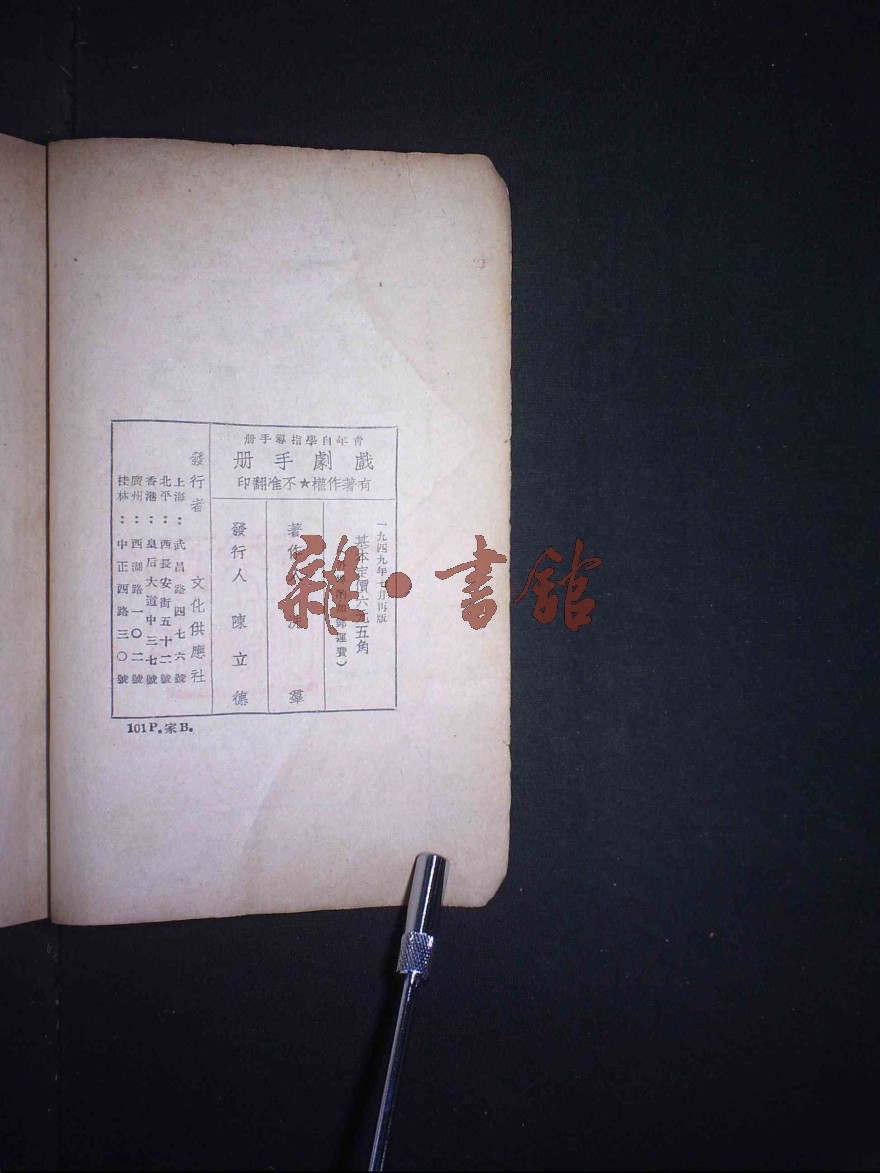 青年自學指導手册
戲劇手册
有著作權★不准翻印
一九四九年七月再版
基本定價六元五角
郵運費）
著作 羣
發行人 陳立德
發行者 文化供應社
上海：武昌路四七六號
北平：西長安街五十二號
香港：皇后大道中三七號
廣州：西湖路一〇二號
桂林：中正西路三〇號
101P。家B。
雜·書館